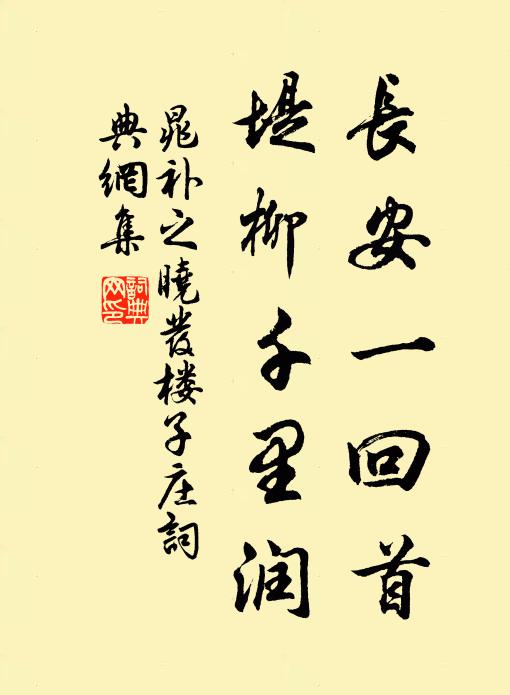 長安一回首
堤柳千里润
晁补之曉发楼子庄詞
典網集
詞典
网印